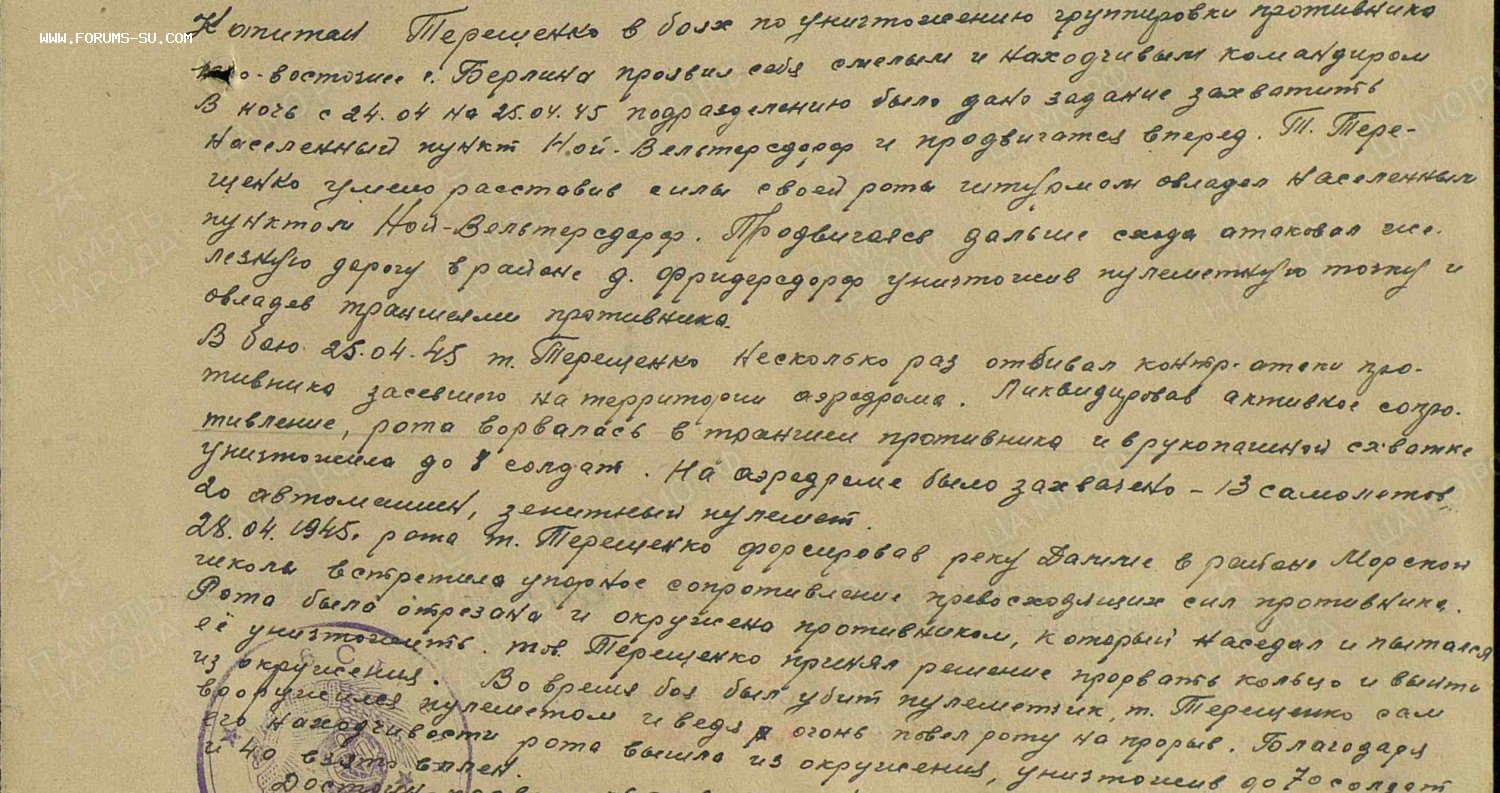 Капитан Терещенко в боях по уничтожению группировки противника
WWW.FORUMS-SU.COM
-восточнее г. Берлина проявил себя смелым и находчивым командиром
В ночь с 24.04 на 25.04.45 подразделению было дано задание захватить
населенный пункт Ной-Вельтерсдорф и продвигатся вперед. Т. Тере-
щенко умело расставив силы своей роты штурмом овладел населенным
пунктом Ной-Вельтерсдорф. Продвигаясь дальше схода атаковал же-
лезную дорогу в районе д. Фридерсдорф уничтожив пулеметную точку и
овладев траншеями противника.
В бою 25.04.45 т. Терещенко несколько раз отбивал контр-атаки про-
тивника засевшего на территории аэродрома. Ликвидировав активное сопро-
тивление, рота ворвалась в траншеи противника и в рукопашной схватке
уничтожила до 8 солдат. На аэродроме было захвачено - 13 самолетов
20 автомашин, зенитный пулемет.
28.04.1945г. рота т. Терещенко форсировав реку Даниме в районе Морской
школы встретила упорное сопротивление превосходящих сил противника.
Рота была отрезана и окружена противником, который наседал и пытался
её уничтожить. тов. Терещенко принял решение прорвать кольцо и выйти
из окружения. Во время боя был убит пулеметчик, т. Терещенко сам
вооружился пулеметом и ведя огонь повел роту на прорыв. Благодаря
его находчивости рота вышла из окружения, уничтожив до 70 солдат
и 40 взято в плен.
Достоин
ПАМЯТЬ НАРОДА
ЦАМО РФ